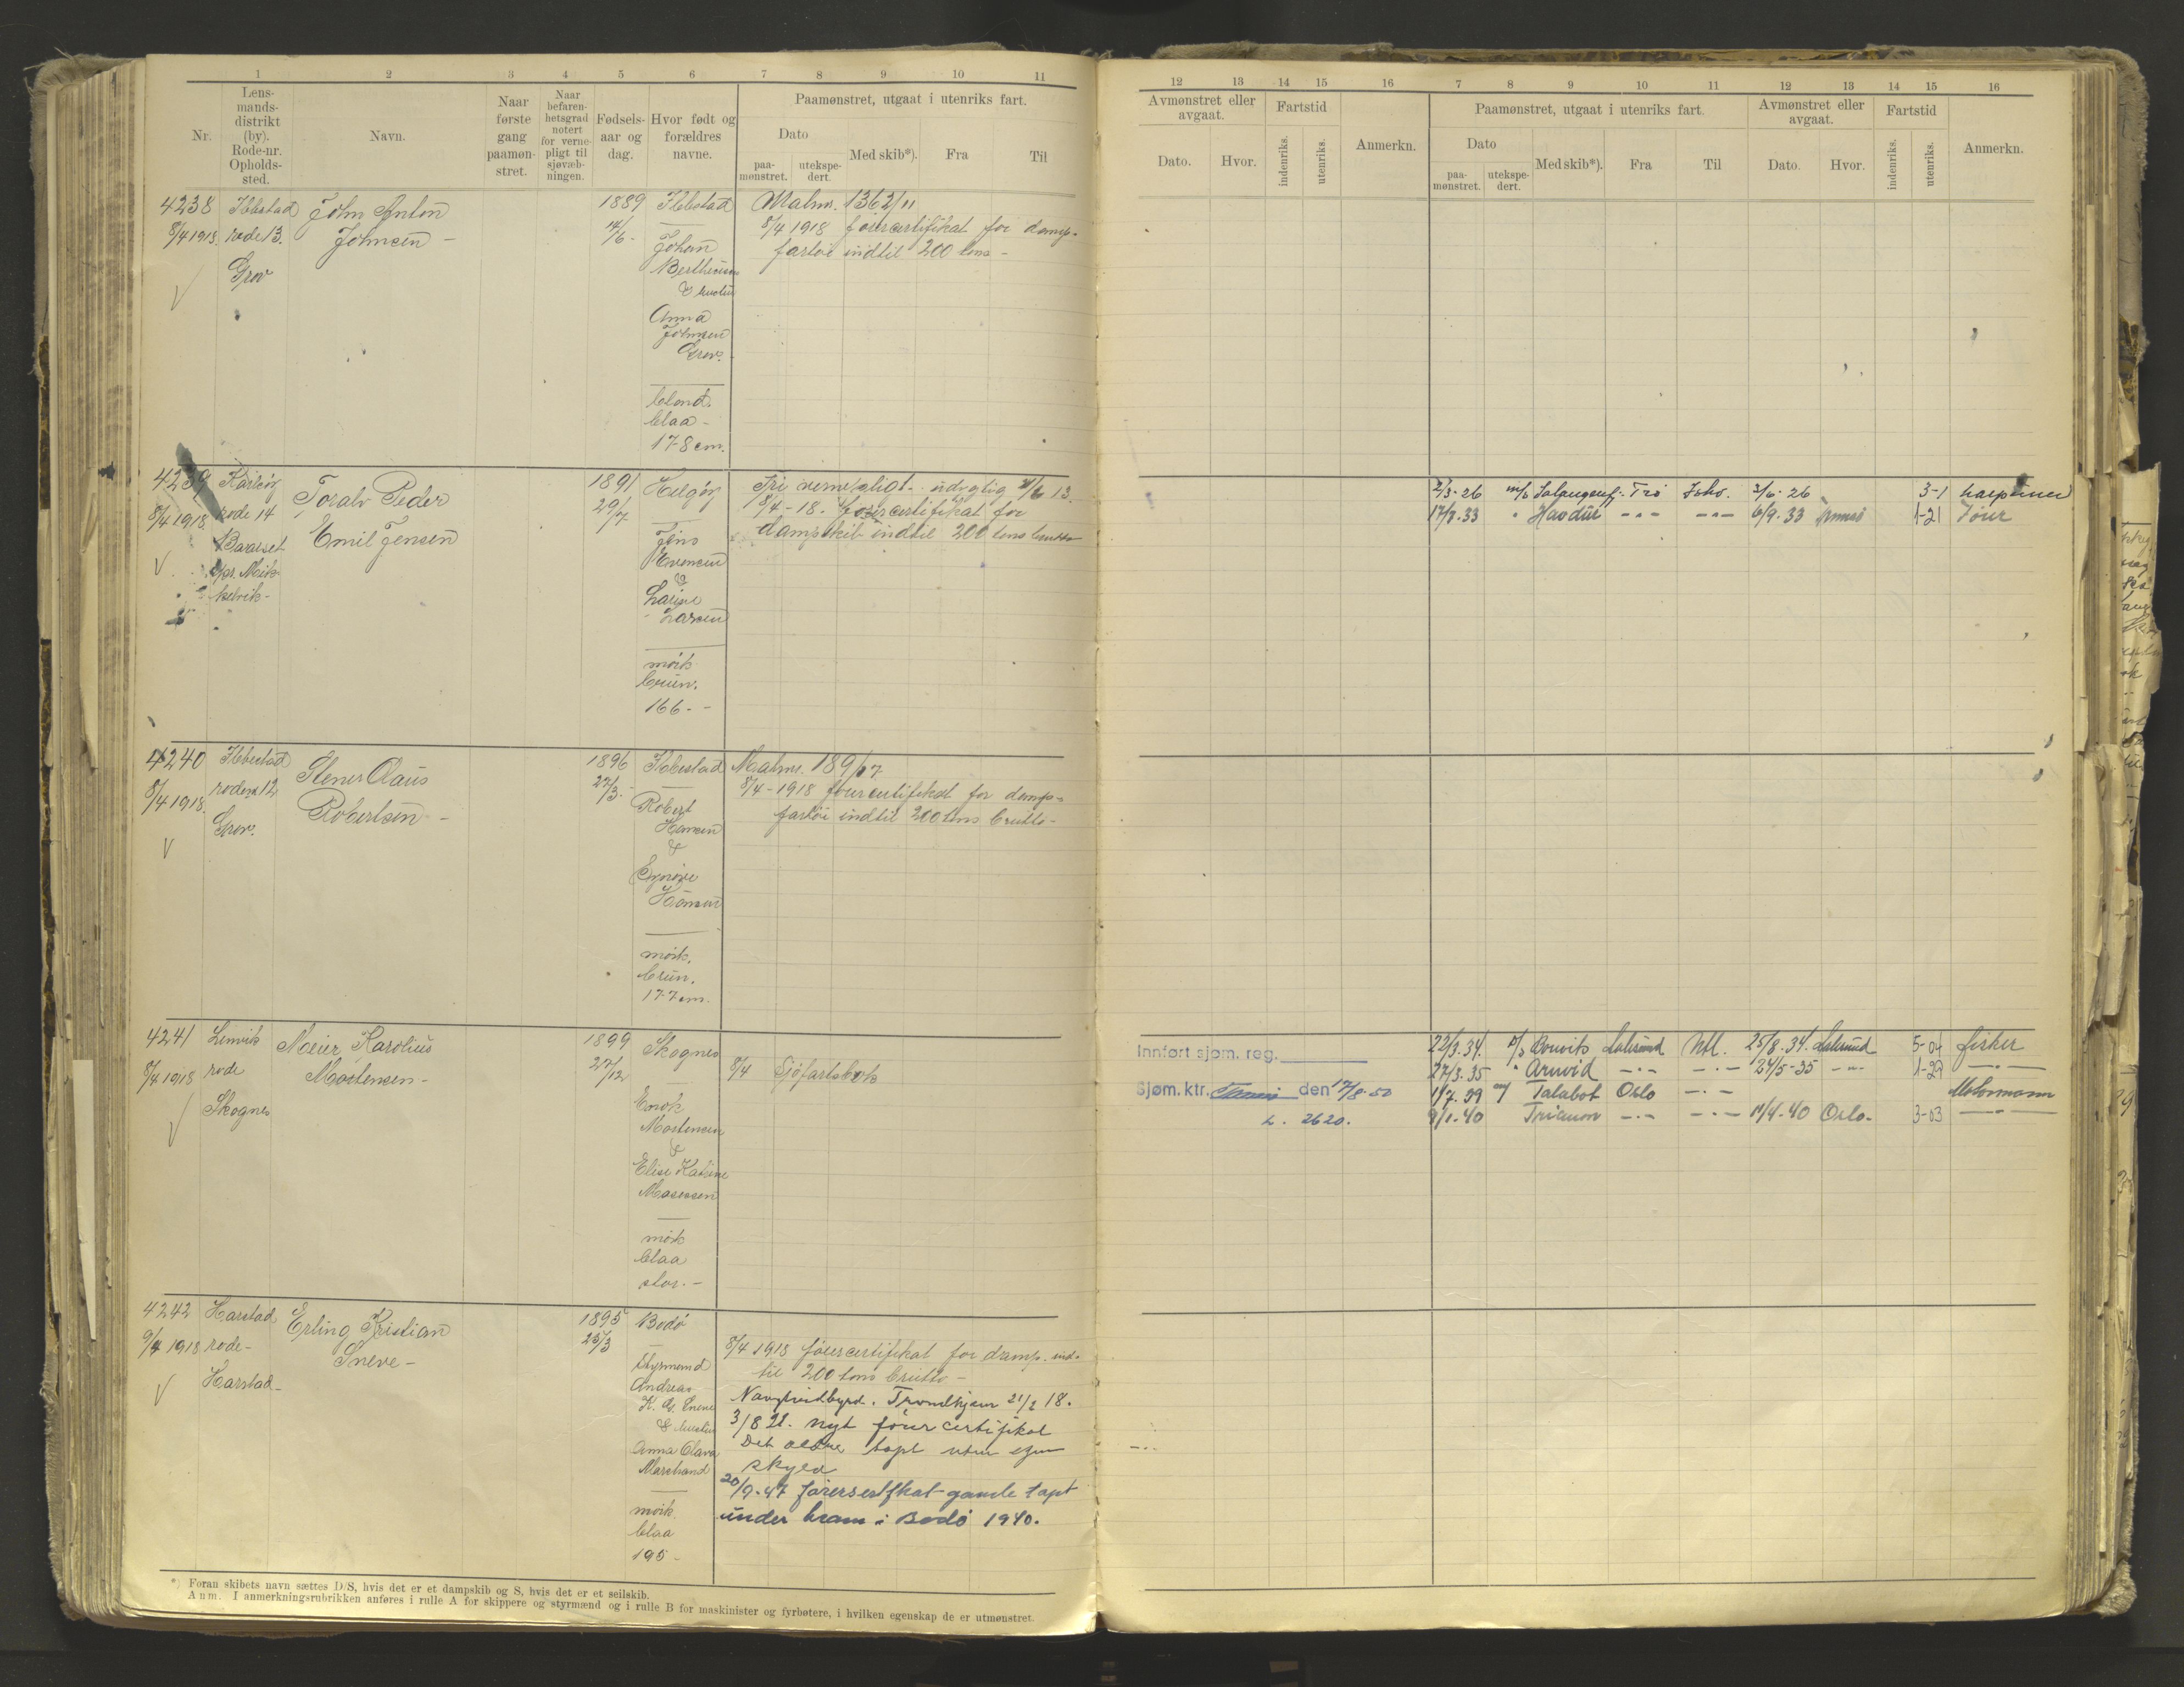 1 2 3 4 5 6 7 8 9 10 11
Nr.
Lens-
mands-
distrikt
(by).
Rode-nr.
Opholds-
sted.
Navn.
Naar
første
gang
paamøn-
stret.
Naar
befaren-
hetsgrad
notert
for verne-
pligt til
sjøvæb-
ningen.
Fødsels-
aar og
dag.
Hvor født og
forældres
navne.
Paamønstret, utgaat i utenriks fart.
Dato
paa-
mønstret.
utekspe-
dert.
Med skib*).
Fra
Til
4238
8/4 1918.
Ibbestad
rode 13.
Grov
John Anton
Johnsen -
1889
14/6-
Ibbestad
Johan
& hustru
Anna
Johnsen
Grov.
blond.
blaa -
178 cm.
Malm. 1362/11
8/4 1918 førercertifikat for damp-
fartøi indtil 200 tons -
4239
8/4 1918.
Karlsøy
rode 14
Toralv Peder
Emil Jensen
1891
29/7
Helgøy
Jens
&
Larsen
mørk
brun.
166 - -
8/4-18. førercertifikat for
dampskib indtil 200 tons brutto
4240
8/4 1918.
Ibbestad
rode 12
Grov.
Stener Olaus
Robertsen -
1896
27/3.
Ibbestad
Robert
Hansen
&
Hansen
mørk.
brun.
177 cm.
Malm. 189/17
8/4-1918 førercertifikat for damp-
fartøi indtil 200 tons brutto -
4241
8/4 1918
Lenvik
rode
Skognes
Meier Karolius
Mortensen -
1899
27/12
Skognes
Enok
Mortensen
&
Elise Katrine
mørk
blaa
stor. -
8/4 Sjøfartsbok
4242
9/4 1918
Harstad
rode -
Harstad -
Erling Kristian
Sneve -
1895
25/3
Bodø
Styrmand
Andreas
K. G. Sneve
& hustru
Anna Olava
mørk.
blaa
195 -
8/4 1918 førercertifikat for damp. ind-
til 200 tons brutto -
Trondhjem 21/2 18.
3/8 21. nyt førercertifikat
Det ældre tapt uten egen
skyld
20/9-47 førersertfkat gamle tapt
under brann i Bodø 1940.
*) Foran skibets navn sættes D/S, hvis det er et dampskib og S, hvis det er et seilskib.
Anm. I anmerkningsrubrikken anføres i rulle A for skippere og styrmænd og i rulle B for maskinister og fyrbøtere, i hvilken egenskap de er utmønstret.
12 13 14 15 16 7 8 9 10 11 12 13 14 15 16
Avmønstret eller
avgaat.
Dato.
Hvor.
Fartstid
indenriks.
utenriks.
Anmerkn.
Paamønstret, utgaat i utenriks fart.
Dato
paa-
mønstret.
utekspe-
dert.
Med skib*).
Fra
Til
Avmønstret eller
avgaat.
Dato.
Hvor.
Fartstid
indenriks.
utenriks.
Anmerkn.
2/3-26 Trø Ishv. 3/6-26 3-1
17/3.33 " Havdur -"- -"- 6/9.33 1-21 fører
Innført sjøm. reg.
Sjøm. ktr. Tromsø den 17/8-50
L. 2620.
22/3.34. Utl. 25/8.34. 5-04 fisker
27/3.35 " Arnvid -"- -"- 24/5-35 -"- 1-29 -"-
1/7.39 Talabot Oslo -"- Motormann
9/1-40 Trianon -"- -"- 11/4-40 Oslo- 3-03 -"-